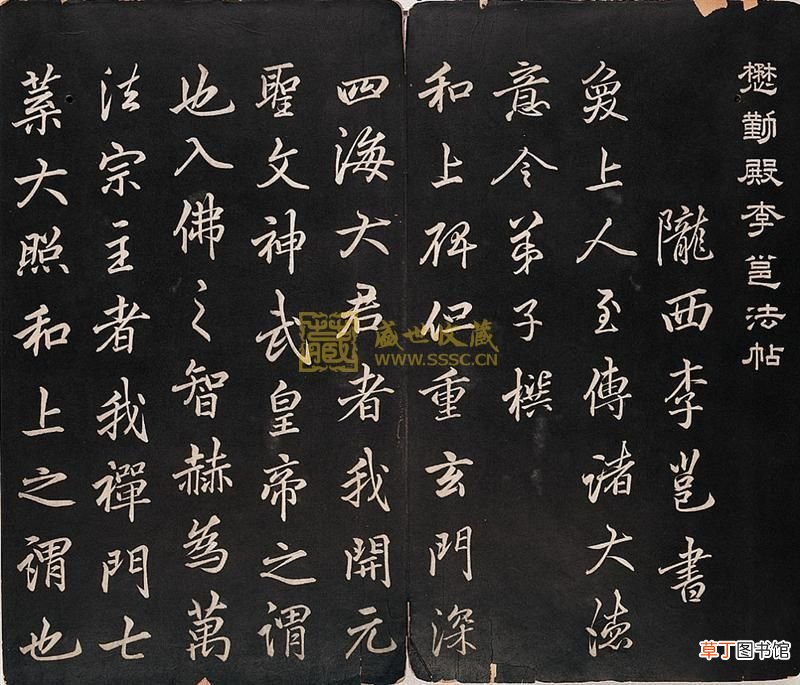 懋勤殿李邕法帖
隴西李邕書
奐上人至傳諸大德
意令弟子撰
和上碑但重玄門深
四海大君者我開元
聖文神武皇帝之謂
也入佛之智赫為萬
法宗主者我禪門七
葉大照和上之謂也
藏
盛世收藏
www.sssc.cn
草丁图书馆